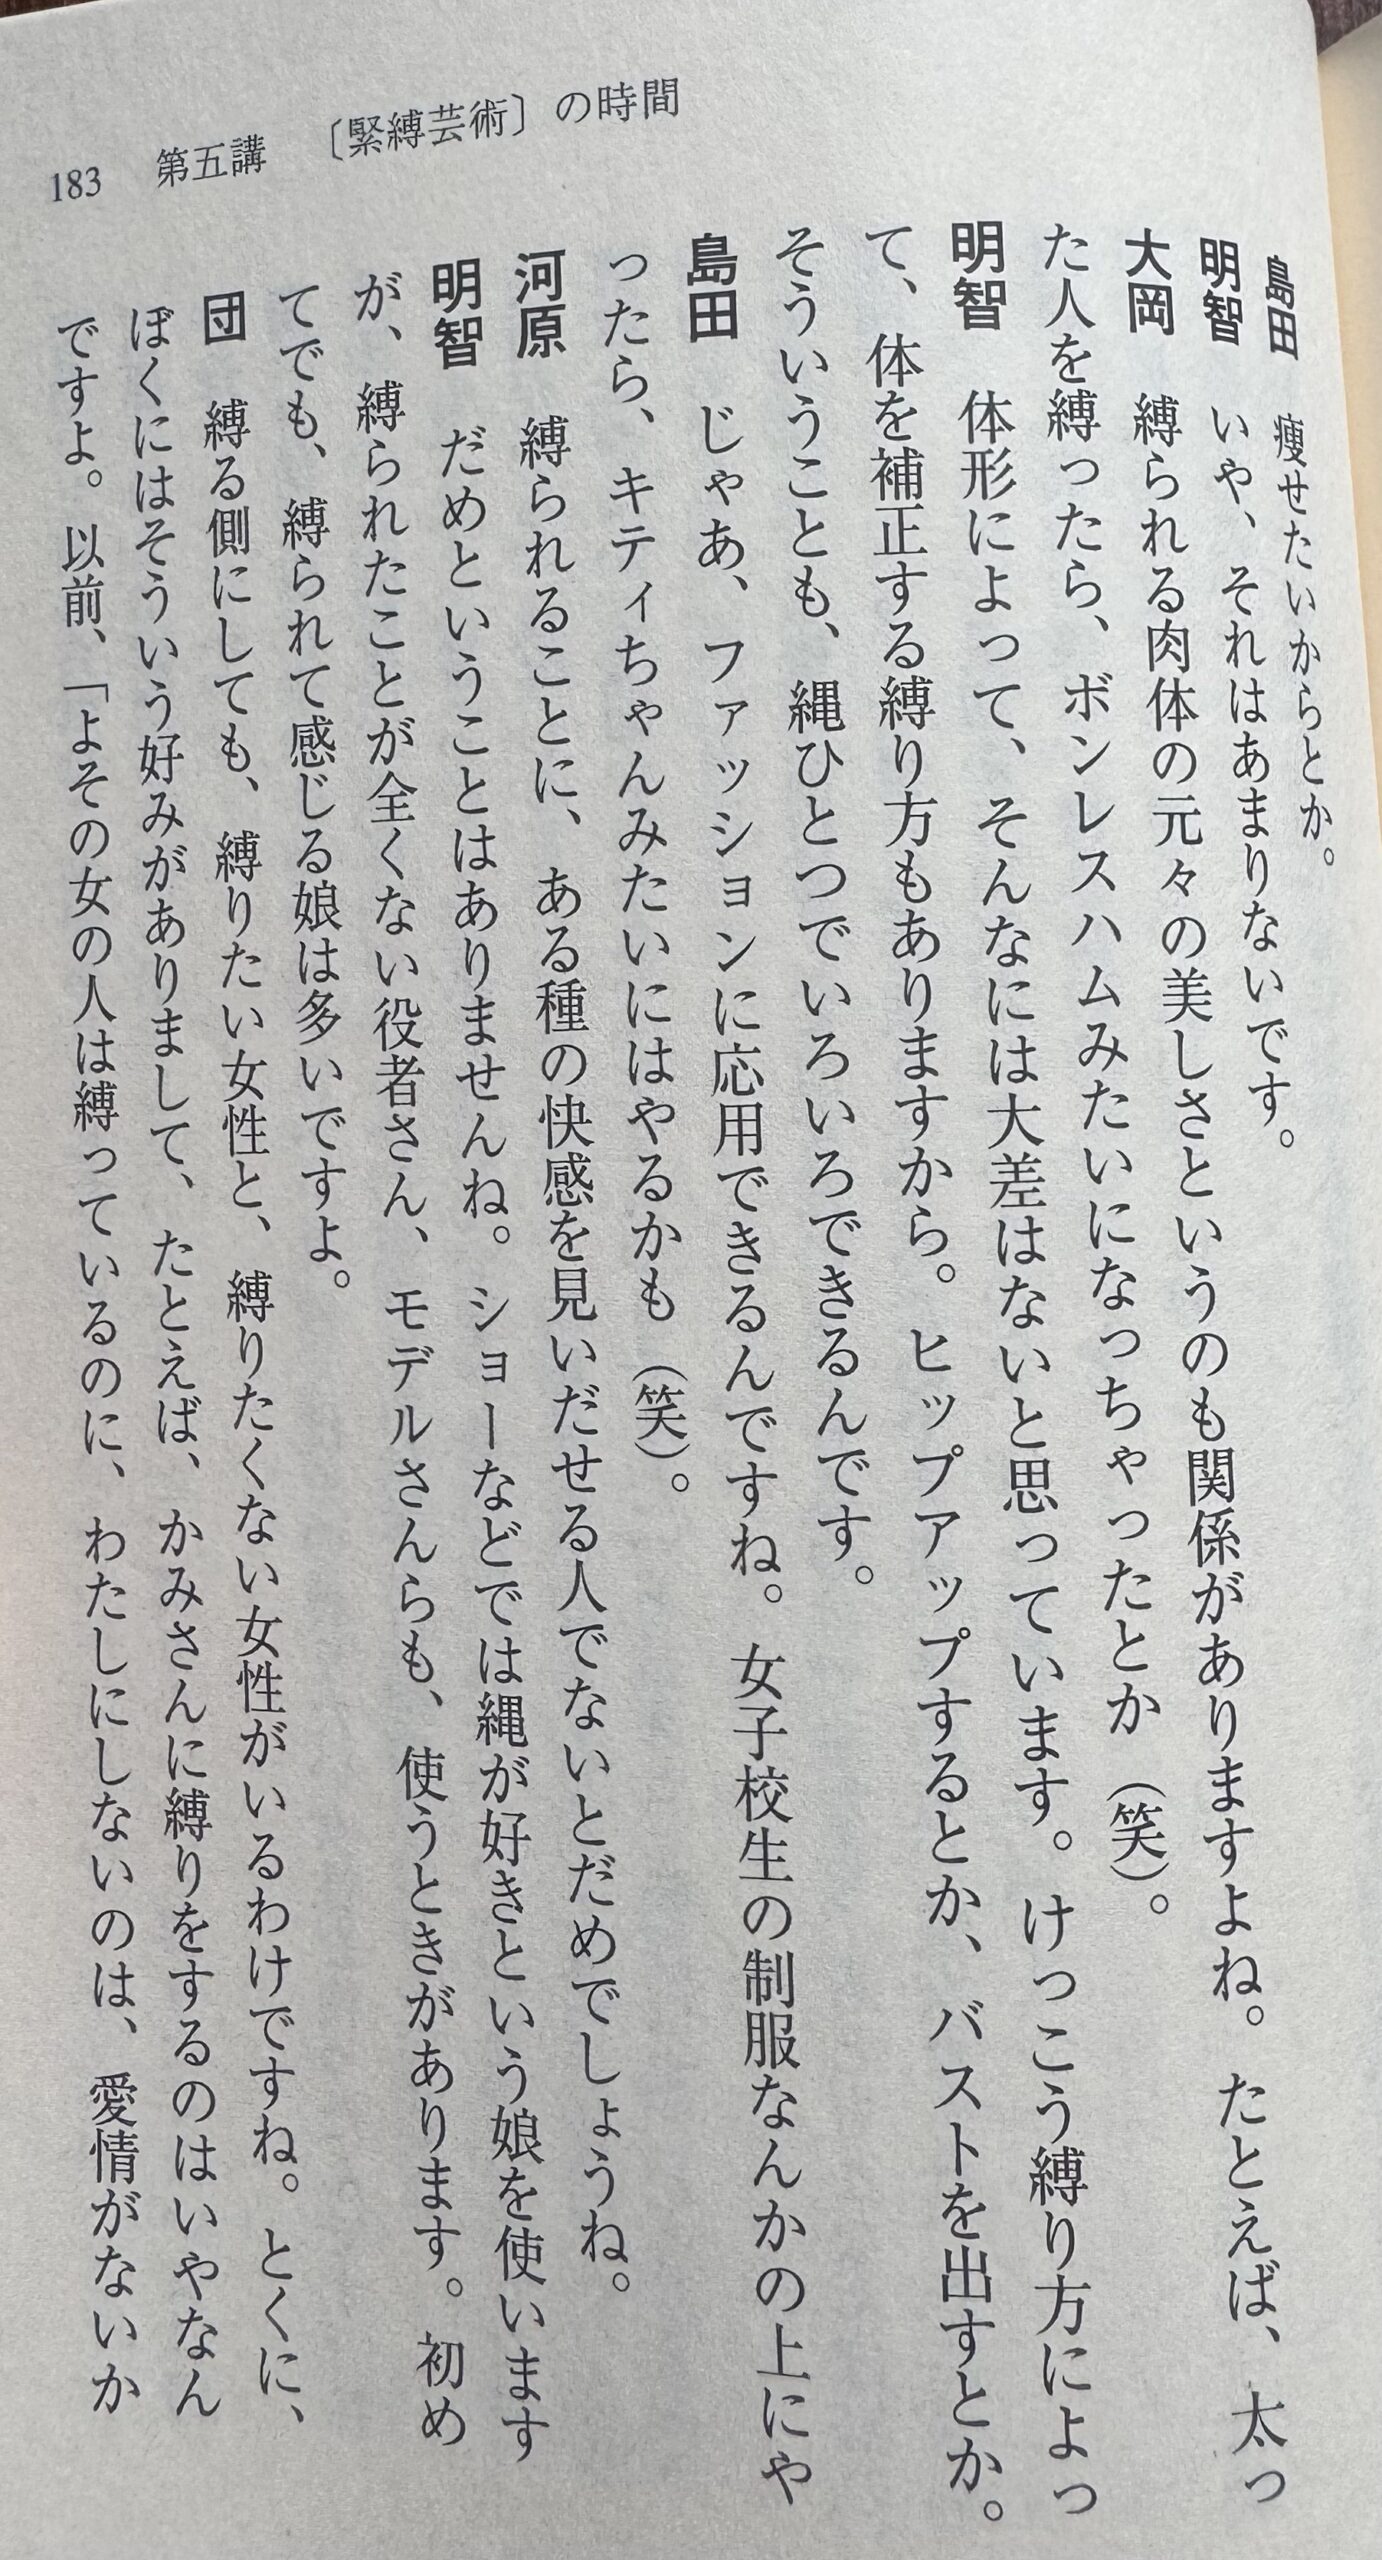 183　第五講　〔緊縛芸術〕の時間
島田　痩せたいからとか。
明智　いや、それはあまりないです。
大岡　縛られる肉体の元々の美しさというのも関係がありますよね。たとえば、太っ
た人を縛ったら、ボンレスハムみたいになっちゃったとか（笑）。
明智　体形によって、そんなには大差はないと思っています。けっこう縛り方によっ
て、体を補正する縛り方もありますから。ヒップアップするとか、バストを出すとか。
そういうことも、縄ひとつでいろいろできるんです。
島田　じゃあ、ファッションに応用できるんですね。女子校生の制服なんかの上にや
ったら、キティちゃんみたいにはやるかも（笑）。
河原　縛られることに、ある種の快感を見いだせる人でないとだめでしょうね。
明智　だめということはありませんね。ショーなどでは縄が好きという娘を使います
が、縛られたことが全くない役者さん、モデルさんらも、使うときがあります。初め
てでも、縛られて感じる娘は多いですよ。
団　縛る側にしても、縛りたい女性と、縛りたくない女性がいるわけですね。とくに、
ぼくにはそういう好みがありまして、たとえば、かみさんに縛りをするのはいやなん
ですよ。以前、「よその女の人は縛っているのに、わたしにしないのは、愛情がないか